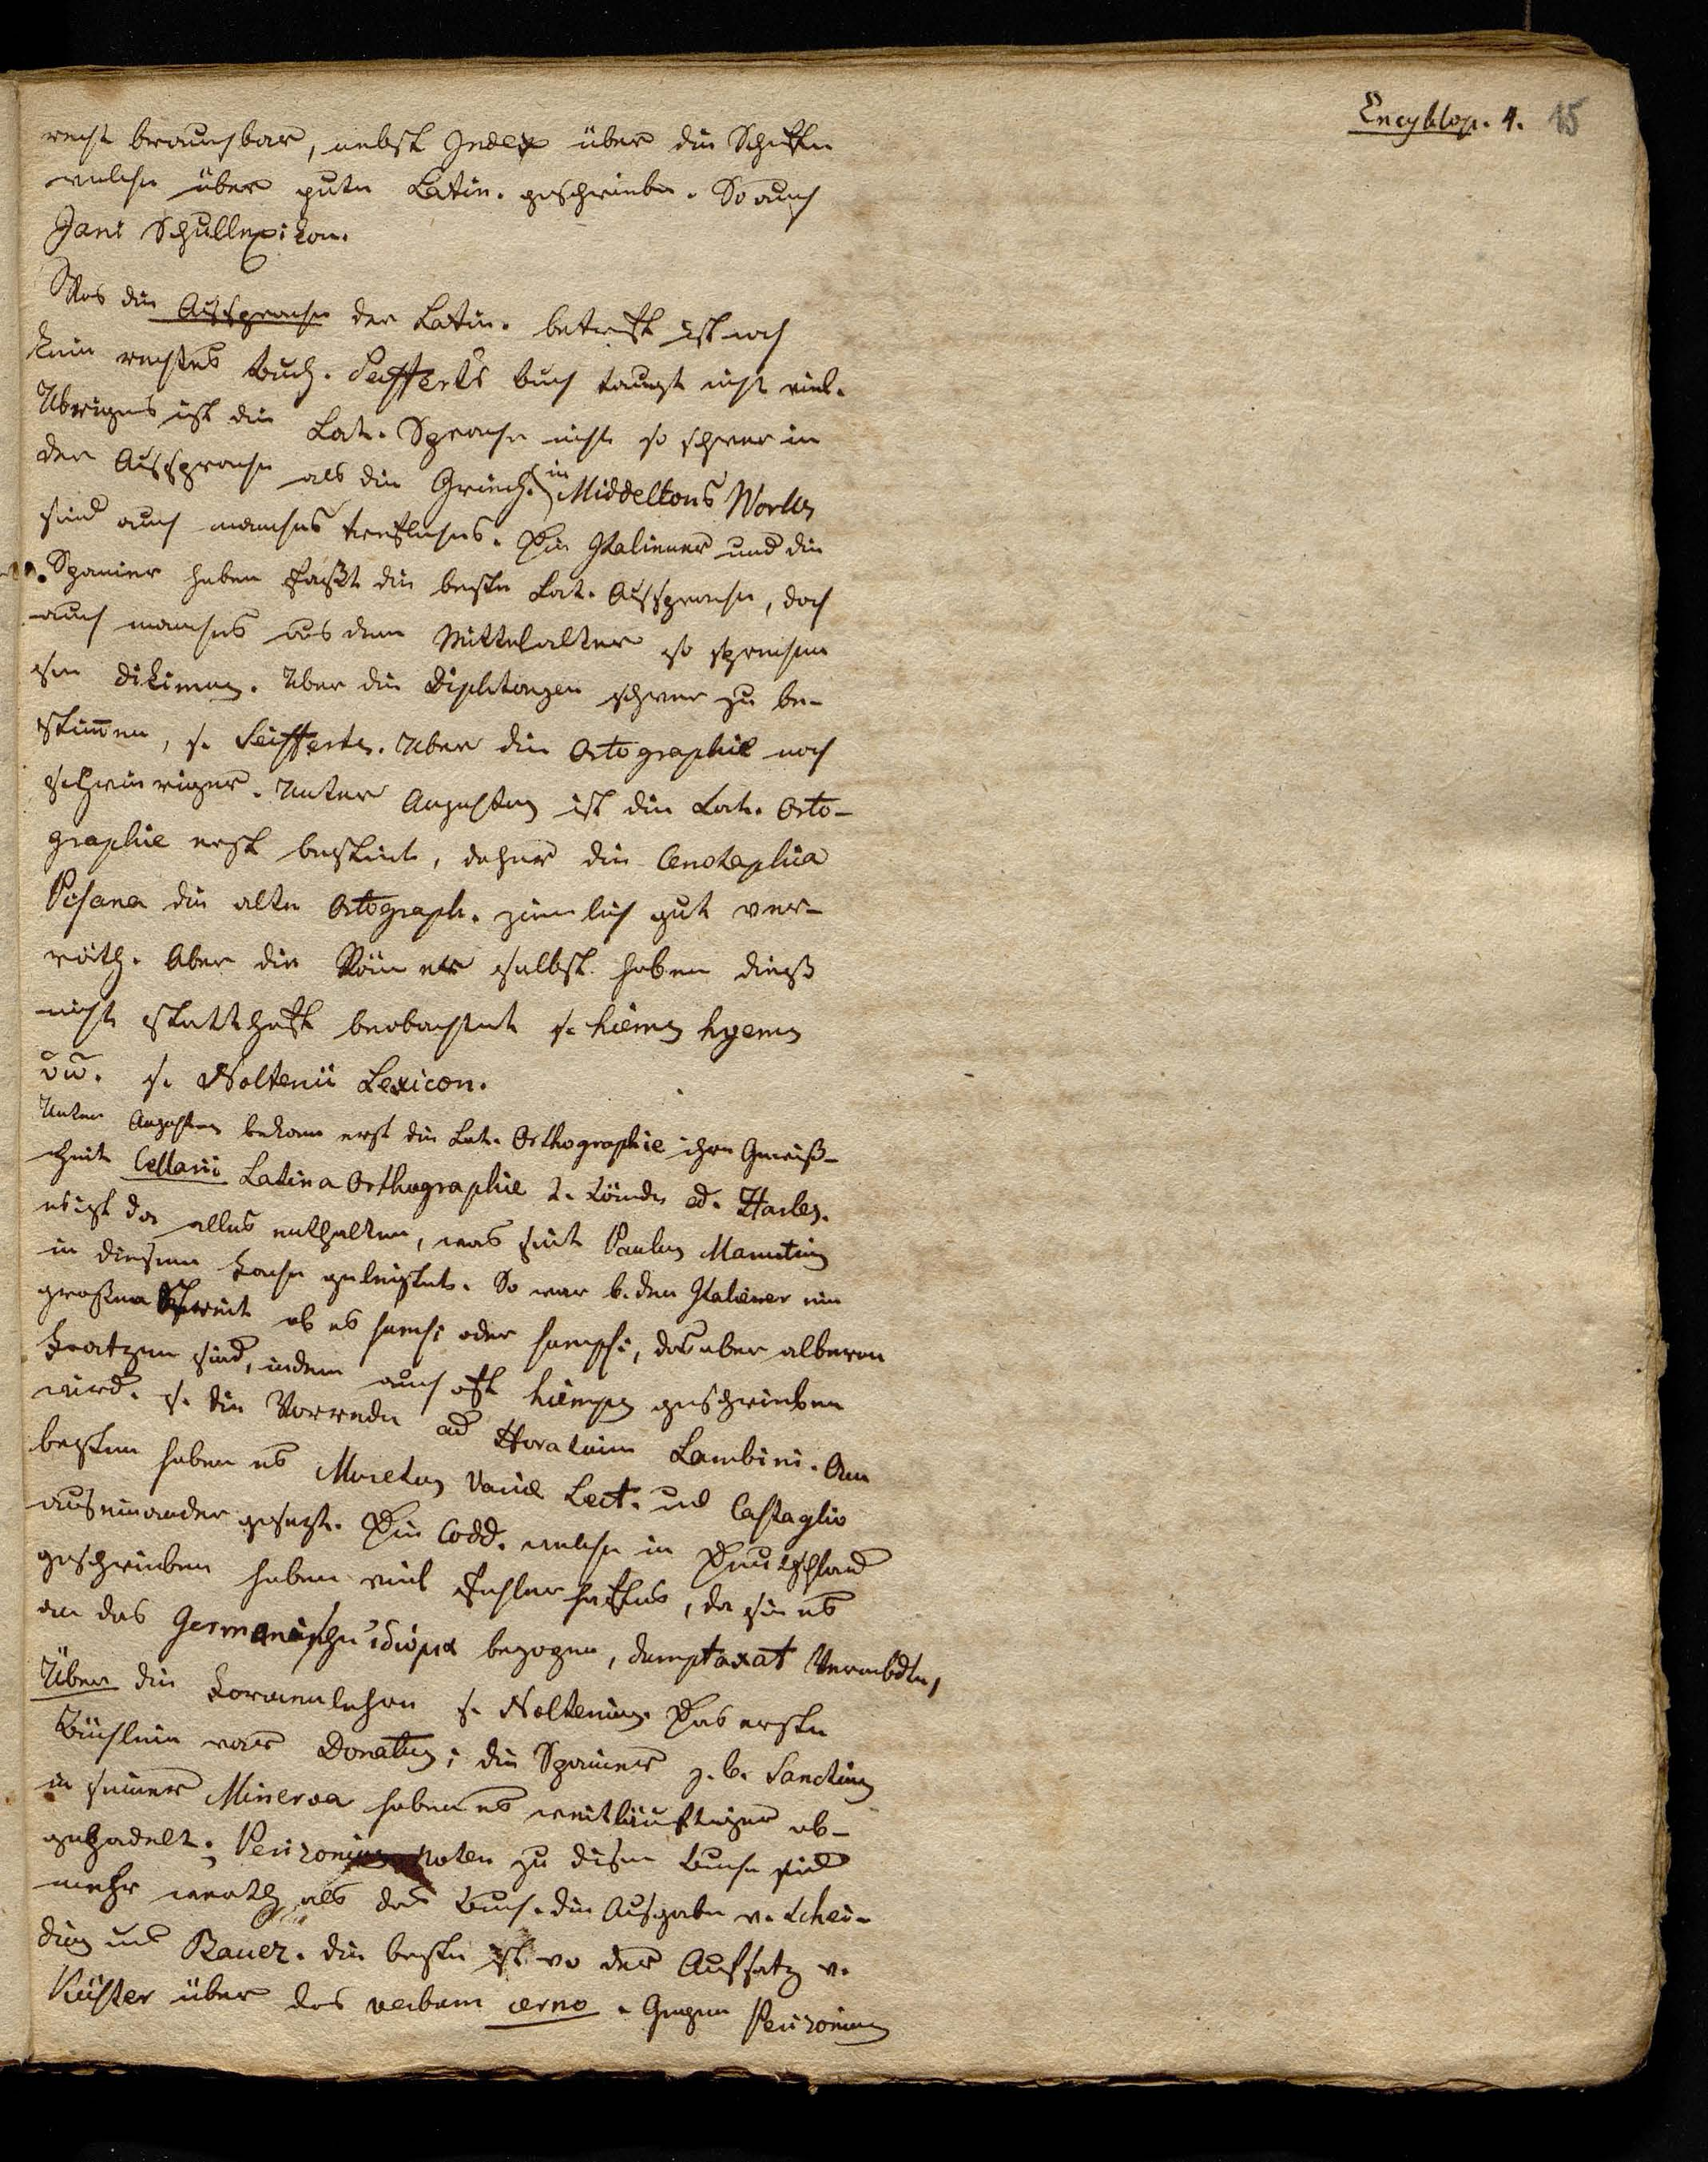 Encyklop. 4. 15
recht brauchbar, nebst Index über die Schriften
welche über gute Latin. geschrieben. So auch
Jani Schullexikon.
Was die Aussprache der Latin. betrifft ist noch
kein rechtes Buch. Seyfferts Buch taugt nicht viel.
Übrigens ist die Lat. Sprache nicht so schwer in
der Aussprache als die Griech. in Middeltons Works
sind auch manches treffliches. Die Italiener und die
Spanier haben fast die beste Lat. Aussprache, doch
auch manches aus dem Mittelalter so sprechen
sie dikimus. Über die Diphtongen schwer zu be-
stimmen, s. Seiffert. Über die Ortographie noch
schwieriger. Unter Augustus ist die Lat. Orto-
graphie erst bestimt, daher die Cenotaphia
Pisana die alte Ortograph. ziemlich gut ver-
räth. Aber die Römer selbst haben dieß
nicht statthaft beobachtet s. hiems hyems
s. Noltenii Lexicon.
Unter Augustus bekam erst die Lat. Orthographie ihre Gewiß-
heit Cellarii Latina Orthographie 2. Bände ed. Harles.
es ist da alles enthalten, was seit Paulus Manutius
in diesem Fache geleistet. So war b. den Italiener ein
großer Streit ob es sumsi oder sumpsi, das aber alberne
Fratzen sind, indem auch oft hiemps geschrieben
wird. s. die Vorrede ad Horatium Lambini. Am
besten haben es Muretus Variæ Lect. und Castaglio
auseinander gesetzt. Die Codd. welche in Deutschland
geschrieben haben viel Fehlerhaftes, da sie es
an das Germanische ἰδίωμα bezogen, dumptaxat
Über die Formenlehre s. Noltenius. Das erste
Büchlein war Donatus; die Spanier z. b. Sanctius
in seiner Minerva haben es weitläuftiger ab-
gehandelt. Perizonius Noten zu disem Buche sind
mehr werth als das Buch. die Ausgabe v. Schei-
dius und Bauer. die beste ist wo der Aufsatz v.
Küster über das verbum cerno. Gegen Perizonius